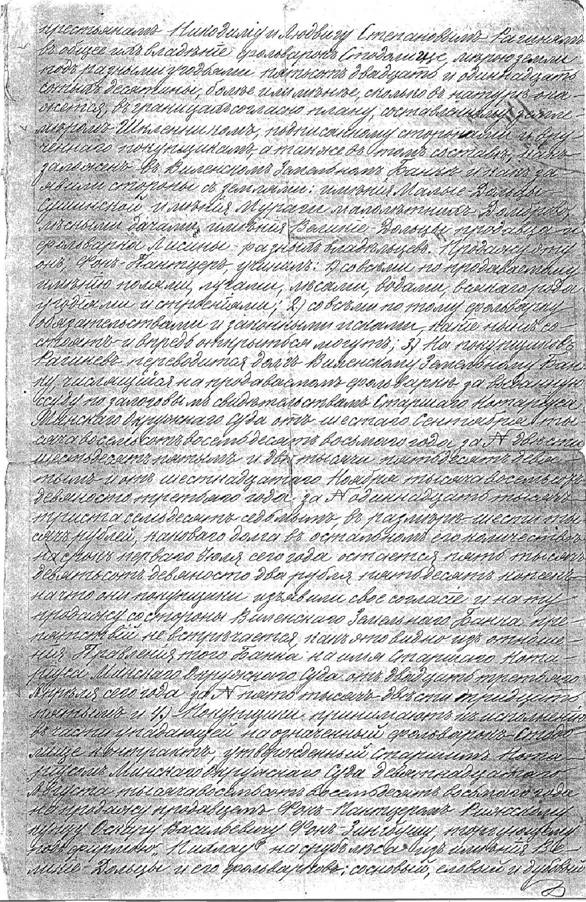 крестьянамъ Никодиму и Людвигу Степановымъ Рагинямъ
въ общее ихъ владѣніе фольварокъ Стодолище, мѣрою земли
подъ разными угодьями пятьсотъ двадцать и одиннадцать
сотыхъ десятины, болѣе или менѣе, сколько въ натурѣ ока-
жется, въ границахъ согласно плану, составленному земле-
мѣромъ подписанному сторонами и вру-
ченнаго покупщикамъ, а также въ томъ составѣ, какъ
заложенъ въ Виленскомъ Земельномъ Банкѣ и какъ за-
явили стороны съ землями: имѣнія Малые-Дольцы
имѣнія Мураги малолѣтнихъ
лѣсными дачами, имѣнія Великіе Дольцы продавца и
фольварка Лисины разныхъ владѣльцевъ. Продажу эту
онъ, Фонъ-Пантцеръ, учинилъ: 1) со всѣми по продаваемому
имѣнію полями, лугами, лѣсами, водами, всякаго рода
угодіями и строеніями; 2) со всѣми по тому фольварку
обязательствами и законными исками, какіе нынѣ со-
стоятъ и впредь открыться могутъ; 3) На покупщиковъ
Рагиней переводится долгъ Виленскому Земельному Бан-
ку, числящійся на продаваемомъ фольваркѣ за выданную
ссуду по залоговымъ свидѣтельствамъ Старшаго Нотаріуса
Минскаго Окружнаго Суда отъ шестаго Сентября ты-
сяча восемьсотъ восемьдесятъ восьмого года за № двѣсти
шестьдесятъ пятымъ и двѣ тысячи пятьдесятъ девя-
тымъ и отъ шестнадцатаго Ноября тысяча восемьсотъ
девяносто третьяго года за № одиннадцать тысячъ
триста семьдесятъ седьмымъ, въ размѣрѣ шести ты-
сячъ рублей, каковаго долга въ остальномъ его количествѣ
на срокъ перваго Іюля сего года остается пять тысячъ
девятьсотъ девяносто два рубля пятьдесятъ копѣекъ,
на что они покупщики изъявили свое согласіе и на ту
продажу со стороны Виленскаго Земельнаго Банка пре-
пятствій не встрѣчается, какъ это видно изъ отноше-
нія Правленія того Банка на имя Старшаго Нота-
ріуса Минскаго Окружнаго Суда отъ двадцать третьяго
Апрѣля сего года за № пять тысячъ двѣсти тридцать
пятымъ и 4) Покупщики принимаютъ къ исполненію
въ части упадающей на означенный фольварокъ Стодо-
лище контрактъ, утвержденный Старшимъ Нота-
ріусомъ Минскаго Окружнаго Суда девятнадцатаго
Августа тысяча восемьсотъ восемьдесятъ восьмого года
на продажу продавцомъ Фонъ-Пантцеромъ Рижскому
купцу Оскару Васильевичу Фонъ- торгующему
подъ фирмою на срубъ лѣса изъ имѣнія Ве-
ликіе-Дольцы и его фольварковъ; сосновый, еловый и дубовый